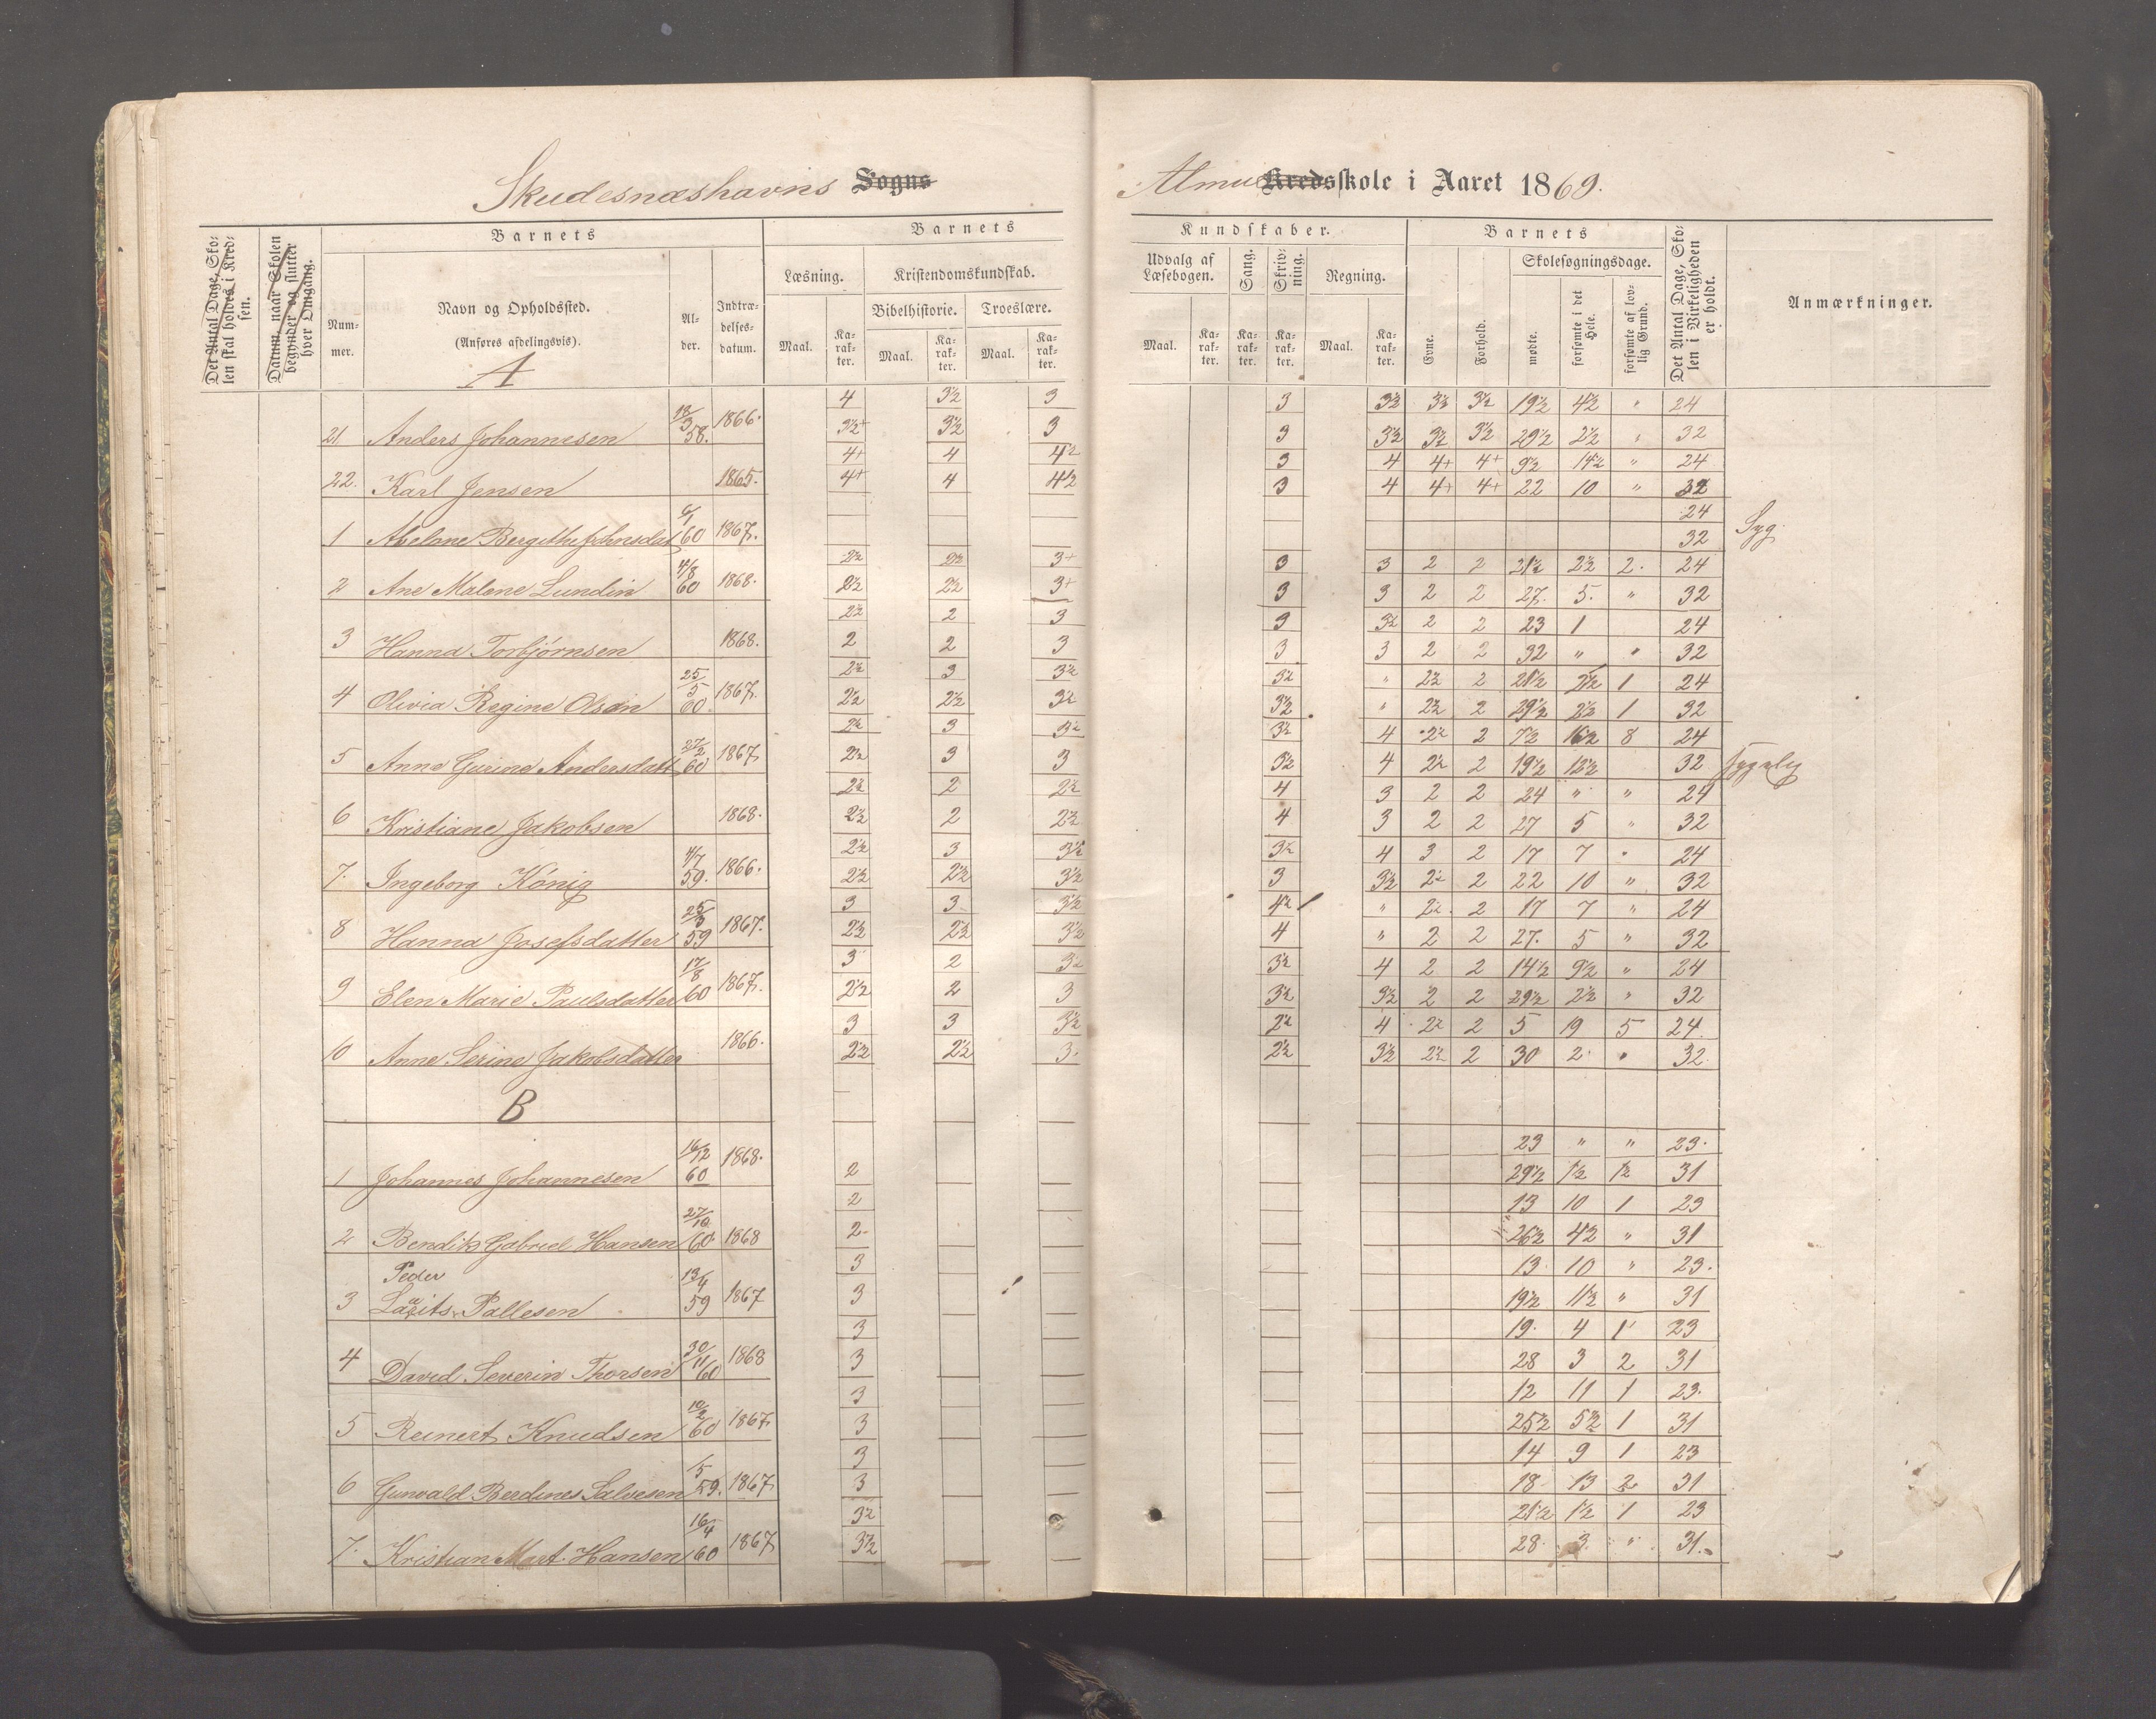 Skudesnæshavns Sogns
Almue Kredsskole i Aaret 1869.
Det Antal Dage, Sko-
len skal holdes i Kred-
sen.
Datum, naar Skolen
begynder og slutter
hver Omgang.
Barnets
Num-
mer.
Navn og Opholdssted.
(Anføres afdelingsvis).
A
Al-
der.
Indtræ-
delses-
datum.
Barnets
Læsning.
Kristendomskundskab.
Bibelhistorie.
Troeslære.
Maal.
Ka-
rak-
ter.
Maal.
Ka-
rak-
ter.
Maal.
Ka-
rak-
ter.
Kundskaber.
Udvalg af
Læsebogen.
Sang.
Skriv-
ning.
Regning.
Maal.
Ka-
rak-
ter.
Ka-
rak-
ter.
Ka-
rak-
ter.
Maal.
Ka-
rak-
ter.
Barnets
Evne.
Forhold.
Skolesøgningsdage.
mødte.
forsømte i det
Hele.
forsømte af lov-
lig Grund.
Det Antal Dage, Sko-
len i Virkeligheden
er holdt.
Anmærkninger.
4 3½ 3 3 3½ 3½ 3½ 19½ 4½ " 24
21. Anders Johannesen 18/3 58. 1866. 3½+ 3½ 3 3 3½ 3½ 3½ 29½ 2½ " 32
4+ 4 4½ 3 4 4+ 4+ 9½ 14½ " 24
22. Karl Jensen 1865. 4+ 4 4½ 3 4 4+ 4+ 22 10 " 32
24
1 Abelone Bergithe Johnsdat 6/1 60 1867. 32 Syg.
2½ 2½ 3+ 3 3 2 2 21½ 2½ 2. 24
2 Ane Malene Lundin 4/8 60 1868. 2½ 2½ 3+ 3 3 2 2 27. 5. " 32
2½ 2 3 3 3½ 2 2 23 1 24
3 Hanna Torbjörnsen 1868. 2 2 3 3 3 2 2 32 " " 32
2½ 3 3½ 3½ " 2½ 2 21½ 2½ 1 24
4 Olivia Regine Olsen 25/5 60. 1867. 2½ 2½ 3½ 3½ " 2½ 2 29½ 2½ 1 32
2½ 3 3½ 3½ 4 2½ 2 7½ 16½ 8 24
5 Anne Gurine Andersdatt 27/2 60 1867 2½ 3 3 3½ 4 2½ 2 19½ 12½ 32 sygelig
2½ 2 2½ 4 3 2 2 24 " " 24
6 Kristiane Jakobsen 1868. 2½ 2 2½ 4 3 2 2 27 5 " 32
2½ 3 3½ 3½ 4 3 2 17 7 " 24
7. Ingeborg König 4/7 59. 1866. 2½ 2½ 3½ 3 3½ 2½ 2 22 10 " 32
3 3 3½ 4½ " 2½ 2 17 7 " 24
8 Hanna Josefsdatter 25/3 59 1867. 2½ 2½ 3½ 4 " 2 2 27. 5 " 32
3 2 3½ 3½ 4 2 2 14½ 9½ " 24
9 Elen Marie Paulsdatter 17/8 60 1867. 2½ 2 3 3½ 3½ 2 2 29½ 2½ " 32
3 3 3½ 2½ 4 2½ 2 5 19 5 24.
10 Anne Serine Jakobsdatter 1866. 2½ 2½ 3. 2½ 3½ 2½ 2 30 2 " 32.
B
23 " " 23.
1 Johannes Johannesen 16/12 60 1868. 2 29½ 1½ 1½ 31
2 13 10 1 23
2 Bendik Gabriel Hansen 27/10 60 1868 2 26½ 4½ " 31
3 13 10 " 23.
3 Peder Laurits Pallesen 13/4 59 1867 3 19½ 11½ " 31
3 19. 4 1 23
4 David Severin Thorsen 30/11 60 1868 3 28 3 2 31
3 12 11 1 23.
5 Reinert Knudsen 10/2 60 1867 3 25½ 5½ 1 31
3 14 9 1 23
6 Gunvald Berdines Salvesen /5 59. 1867 3 18 13 2 31
3½ 21½ 1½ 1 23
7. Kristian Mart. Hansen 16/4 60 1867 3½ 28. 3 " 31.